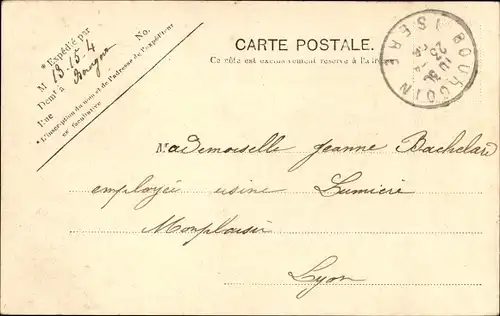 * Expédié par
M 13-15-4
Demt à
Rue
No.
* L'inscription du nom et de l'adresse de l'expéditeur
est facultative
CARTE POSTALE.
Ce côté est exclusivement réservé à l'adresse
BOURGOIN
ISERE
Mademoiselle Jeanne Bachelard
employée usine Lumière
Monplaisir
Lyon